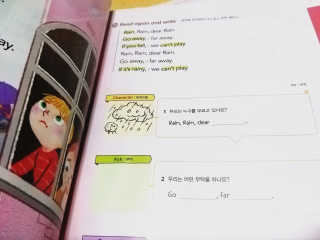 ay.
Read again and write
Rain, Rain, dear Rain.
Go away, far away.
If you fall, we can't play.
Rain, Rain, dear Rain.
Go away, far away.
If it's rainy, we can't play.
Character
1 우리는 누구를 부르고 있나요?
Rain, Rain, dear
2 우리는 어떤 부탁을 하나요?
Go , far .